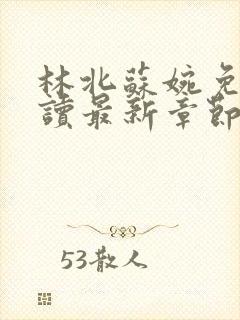 林北蘇婉免
讀最新章節
53散人